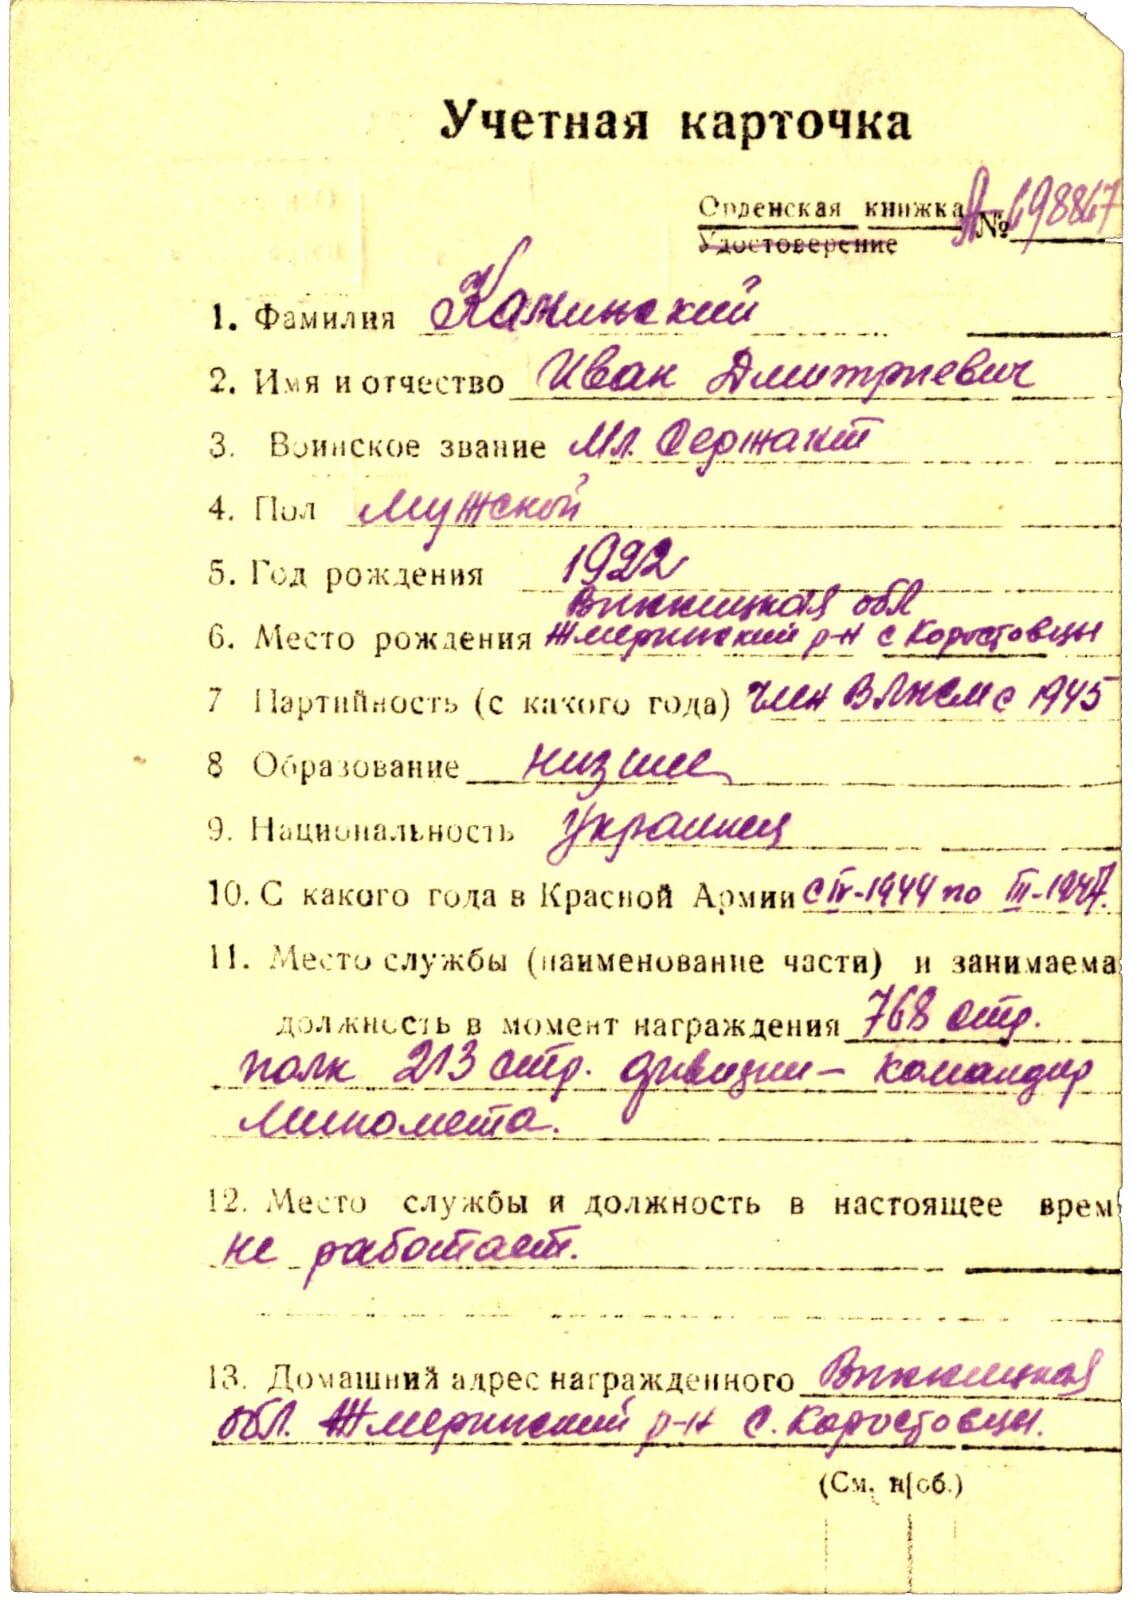 Учетная карточка
Орденская книжка А № 498847
Удостоверение
1. Фамилия Каминский
2. Имя и отчество Иван Дмитриевич
3. Воинское звание Мл. Сержант
4. Пол Мужской
5. Год рождения 1922
Винницкая обл
6. Место рождения Жмеринский р-н с Коростовцы
7 Партийность (с какого года) член ВЛКСМ с 1945
8 Образование низшее
9. Национальность украинец
10. С какого года в Красной Армии с IV-1944 по III-1947.
11. Место службы (наименование части) и занимаема
должность в момент награждения 768 стр.
полк 213 стр. дивизии – командир
миномета.
12. Место службы и должность в настоящее врем
не работает.
13. Домашний адрес награжденного Винницкая
обл. Жмеринский р-н с. Коростовцы.
(См. н/об.)